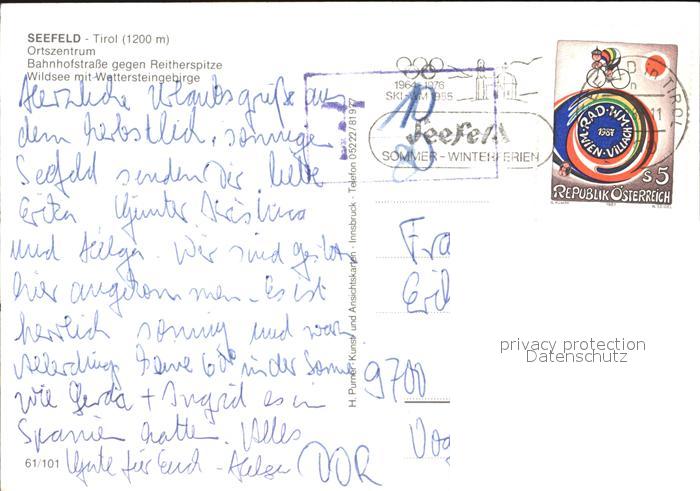 SEEFELD - Tirol (1200 m)
Ortszentrum
Bahnhofstraße gegen Reitherspitze
Wildsee mit Wettersteingebirge
Herzliche Urlaubsgrüße aus
dem herbstlich, sonnigen
Seefeld senden Dir liebe
Erika Günter Kristina
und Helga. Wir sind gestern
hier angekommen. Es ist
herrlich sonnig und warm
Allerdings keine 60° in der Sonne
wie Gerda + Ingrid es in
Spanien hatten. Alles
Gute für Euch - Helga
61/101
H. Purner · Kunst- und Ansichtskarten · Innsbruck · Telefon 05222/8197
1964 1976
SKI-WM 1985
Seefeld
SOMMER - WINTERFERIEN
10
80
TIROL
11
RAD-WM
1987
WIEN-VILLACH
S 5
REPUBLIK ÖSTERREICH
1987
Fra
Eri
9700
Vog
DDR
privacy protection
Datenschutz